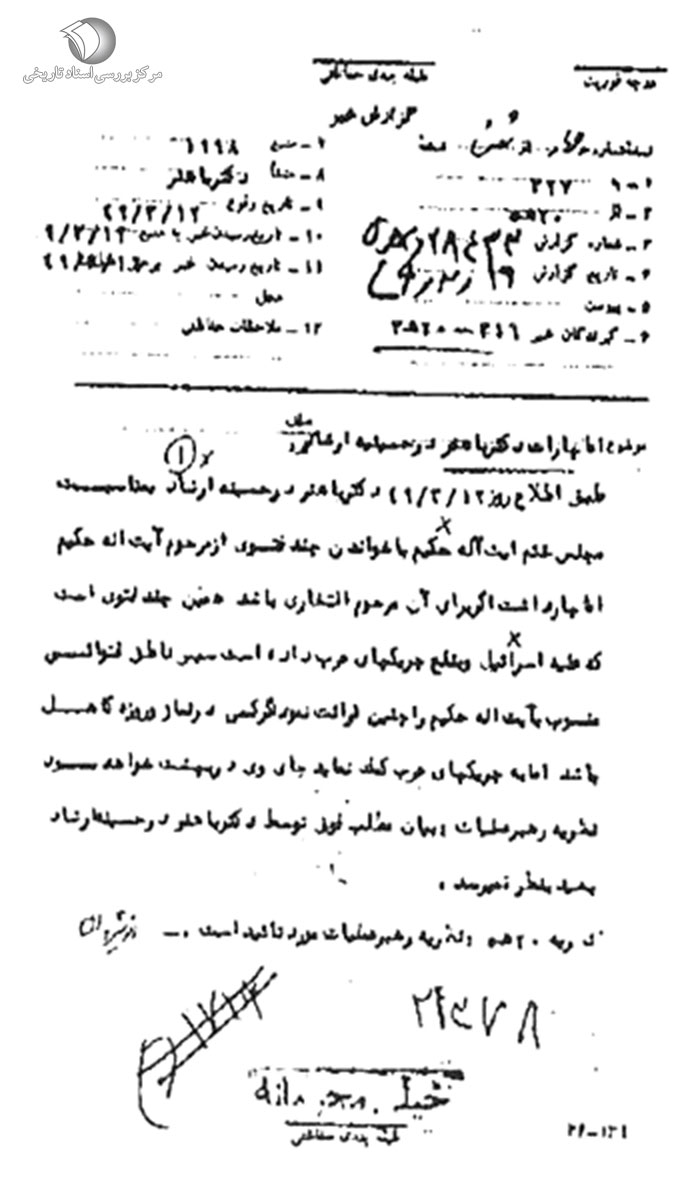 مرکز بررسی اسناد تاریخی
درجه فوریت
طبقه بندی حفاظتی
گزارش خبر
۱ – ۳۲۷
۲ – از ۲۰هـ
۳ – شماره گزارش
۴ – تاریخ گزارش
۵ – پیوست
۶ – گیرندگان خبر ۳۱۶ –
۷ – منبع ۱۹۹۸
۸ – منشأ دکترباهنر
۹ – تاریخ وقوع ۴۹/۳/۱۲
۱۰ – تاریخ رسیدن خبر به منبع
۱۱ – تاریخ رسیدن خبر
محل
۱۲ – ملاحظات حفاظتی
موضوع اظهارات دکترباهنر درحسینیه ارشاد
۱
طبق اطلاع روز ۴۹/۳/۱۲ دکترباهنر درحسینیه ارشاد بمناسبت
مجلس ختم آیت اله حکیم باخواندن چند فتوی ازمرحوم آیت اله حکیم
اظهارداشت اگربرای آن مرحوم افتخاری باشد همین چند فتوی است
که علیه اسرائیل وبنفع چریکهای عرب داده است سپس ناطق فتوائی
منسوب بآیت اله حکیم راچنین قرائت نمود اگرکسی درنماز وروزه کاهل
باشد اما به چریکهای عرب کمک نماید جای وی دربهشت خواهد بود
نظریه رهبرعملیات : بیان مطلب فوق توسط دکترباهنر درحسینیه ارشاد
بعید بنظر نمیرسد .
نظریه ۲۰هـ : نظریه رهبرعملیات مورد تائید است . –
۲۴۶۷۸
خیلی محرمانه
طبقه بندی حفاظتی
۲۶–۱۳۱